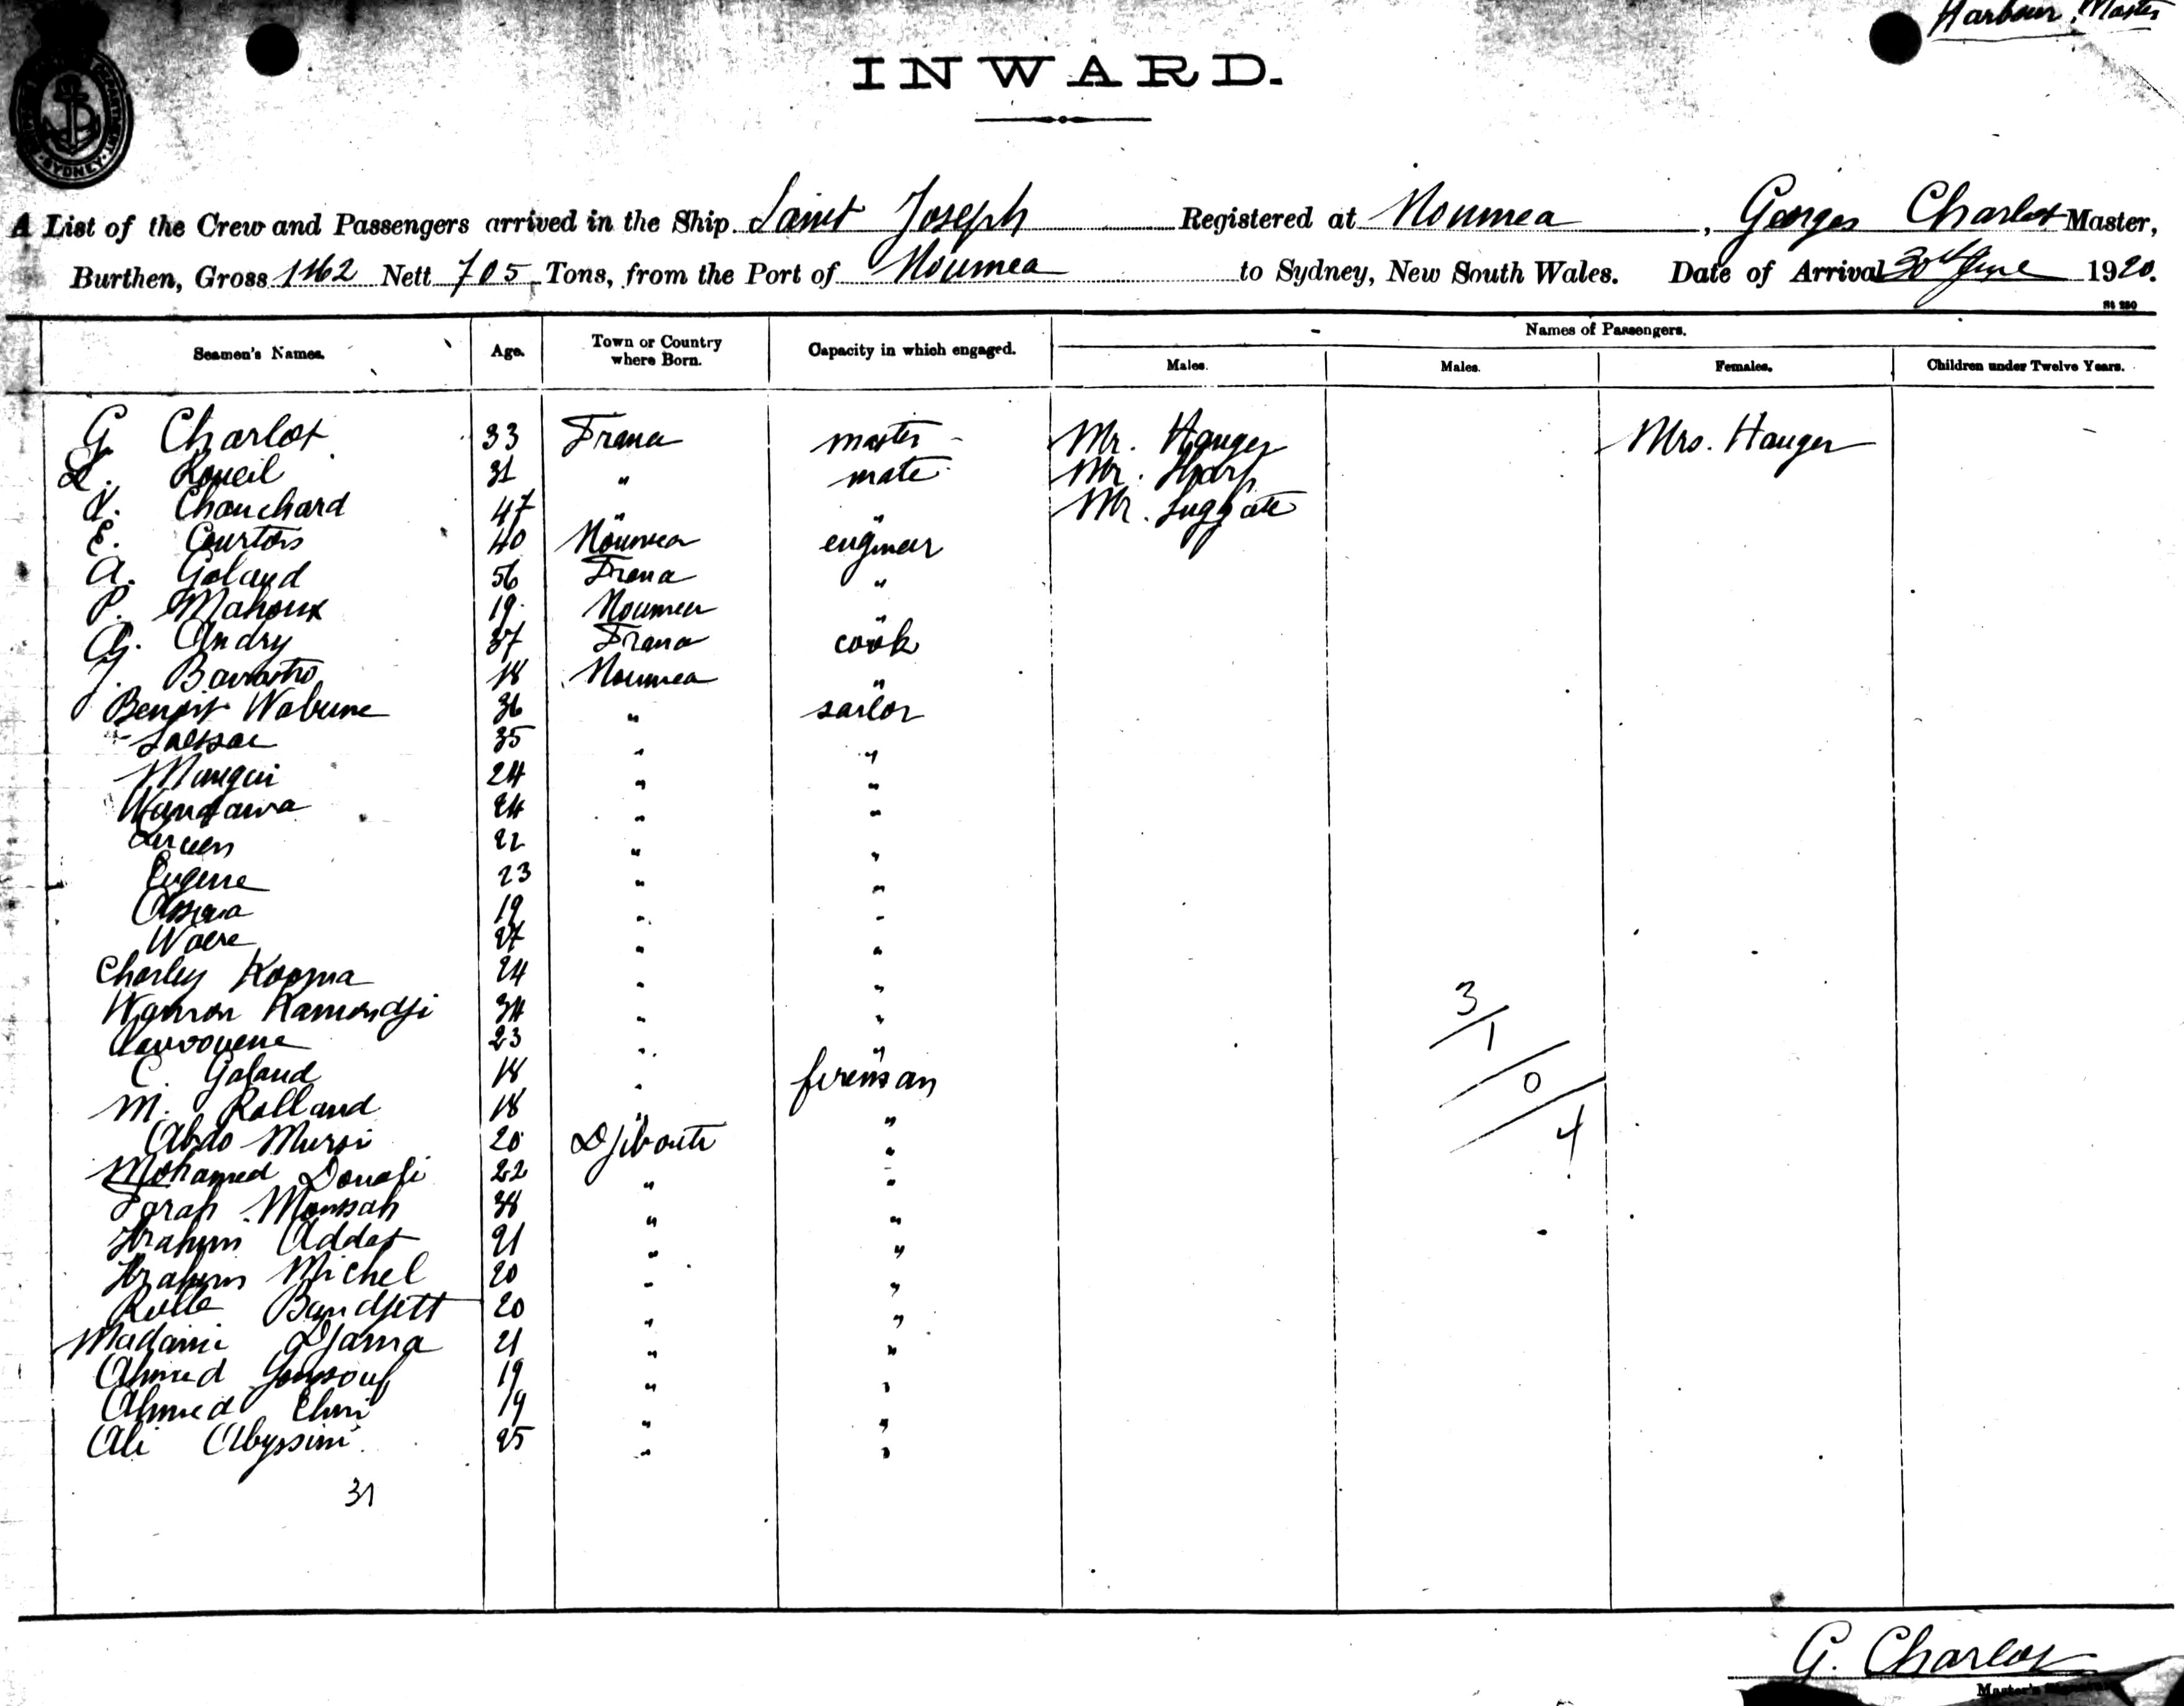 Harbour Master
SYDNEY
INWARD.
A List of the Crew and Passengers arrived in the Ship Saint Joseph Registered at Noumea, Georges Charlot Master,
Burthen, Gross 1162 Nett 705 Tons, from the Port of Noumea to Sydney, New South Wales. Date of Arrival 30th June 1920.
Names of Passengers.
Seamen's Names. Age. Town or Country where Born. Capacity in which engaged. Males. Males. Females. Children under Twelve Years.
G Charlot 33 France master Mr. Hauger Mrs. Hauger
L. 31 " mate Mr.
Chouchard 47 " " Mr. Suggate
E. Courtois 40 Noumea engineer
A. Galand 56 France "
P. Mahoux 19 Noumea "
G. Andry 37 France cook
J. 18 Noumea "
Benoit Wabune 36 " sailor
35 " "
24 " "
24 " "
Lucien 22 " "
Eugene 23 " "
19 " "
27 " "
Charley 24 " "
Kamendji 34 " "
23 " "
C. Galand 18 " fireman
M. Rolland 18 " "
Abdo Mursi 20 Djibouti "
Mohamed Douali 22 " "
Farah Moussah 38 " "
Ibrahim Addat 21 " "
Ibrahim Michel 20 " "
20 " "
Madami Djama 21 " "
Ahmed Youssouf 19 " "
Ahmed Elmi 19 " "
Ali Abyssini 25 " "
31
3/1/0/4
G. Charlot
Master's